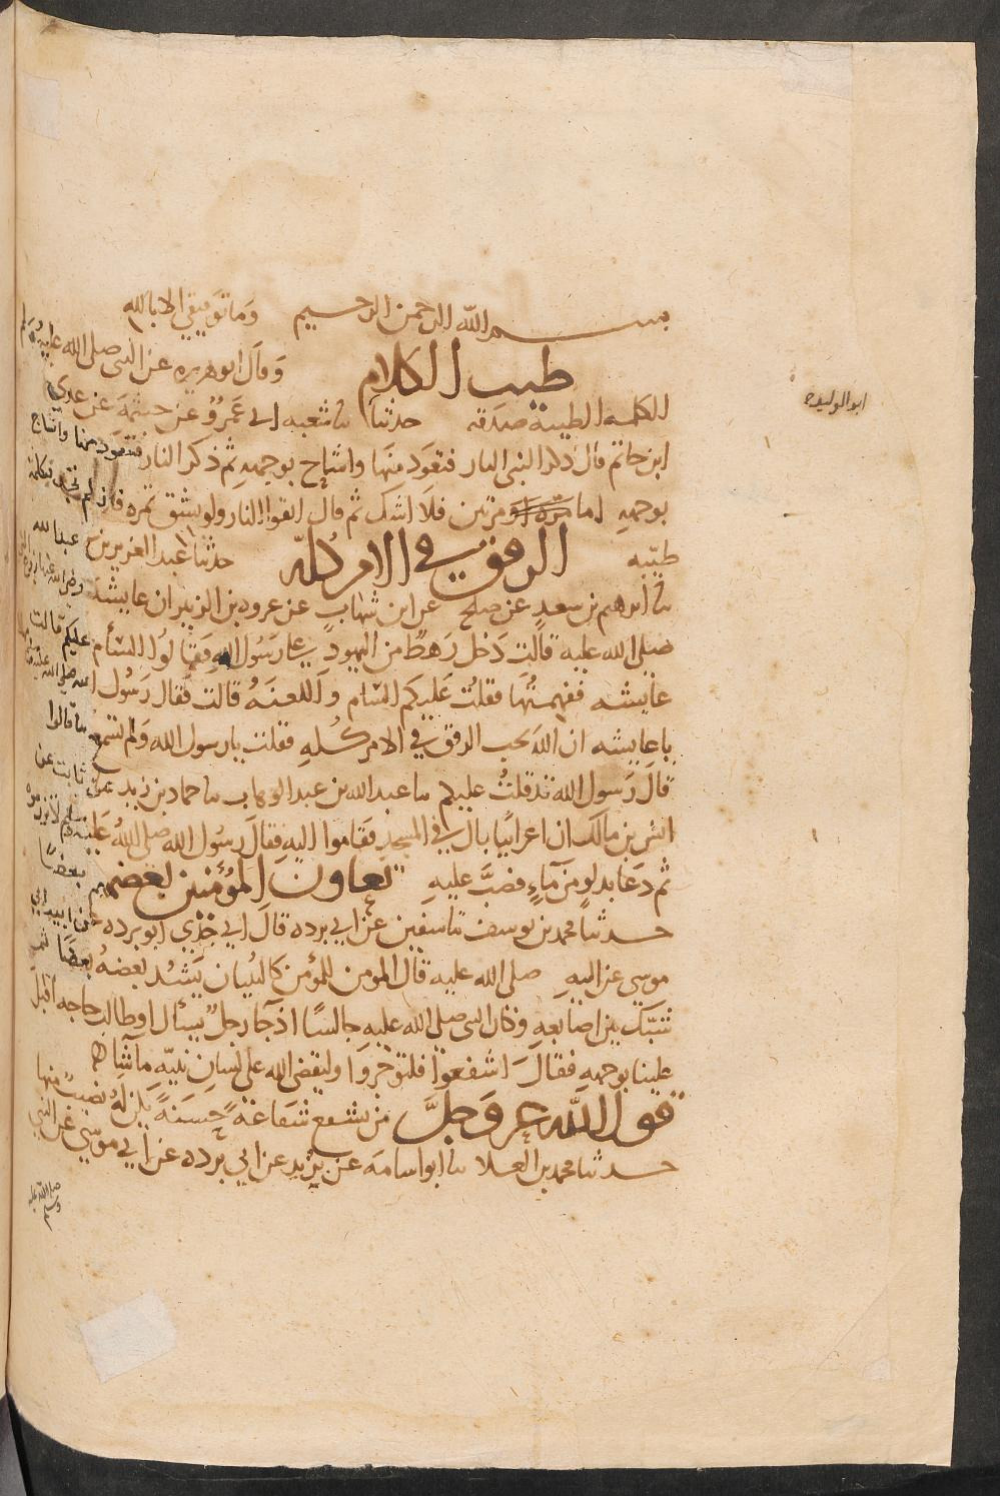 بسم الله الرحمن الرحيم وما توفيقي الا بالله
طيب الكلام وقال ابو هريره عن النبي صلى الله عليه وسلم
الكلمه الطيبة صدقه حدثنا نا شعبه عمرو عن خيثمة عن عدي
ابو الوليد
ابن حاتم قال ذكر النبي النار فتعوذ منها واشاح بوجهه ثم ذكر النار فتعوذ منها واشاح
بوجهه اما مرتين فلا اشك ثم قال اتقوا النار ولو بشق تمره فان لم تجد فبكلمة
طيبه الرفق في الامر كله حدثنا عبد العزيز بن عبد الله
نا ابرهيم بن سعد عن صلح عن ابن شهاب عن عروه بن الزبير ان عايشة
صلى الله عليه قالت دخل رهط من اليهود على رسول الله فقالوا السأم عليكم قالت
عايشه ففهمتها فقلت عليكم السام واللعنة قالت فقال رسول الله صلى الله عليه
يا عايشه ان الله يحب الرفق في الامر كله فقلت يا رسول الله ولم تسمع ما قالوا
قال رسول الله قد قلت عليكم نا عبد الله بن عبد الوهاب نا حماد بن زيد عن ثابت عن
انس بن مالك ان اعرابيا بال في المسجد فقاموا اليه فقال رسول الله صلى الله عليه لا تزرموه
ثم دعا بدلو من ماء فصب عليه تعاون المؤمنين بعضهم بعضا
حدثنا محمد بن يوسف نا سفين عن ابي برده قال ابو برده عن ابيه ابي
موسى عن النبي صلى الله عليه قال المومن للمؤمن كالبنيان يشد بعضه بعضا ثم
شبك بين اصابعه وكان النبي صلى الله عليه جالسا اذ جا رجل يسأل او طالب حاجه اقبل
علينا بوجهه فقال اشفعوا فلتؤجروا وليقض الله على لسان نبيه ما شا
قول الله عز وجل من يشفع شفاعة حسنة يكن له نصيب منها
حدثنا محمد بن العلا نا ابو اسامه عن بريد عن ابي برده عن ابي موسى عن النبي
صلى الله عليه وسلم